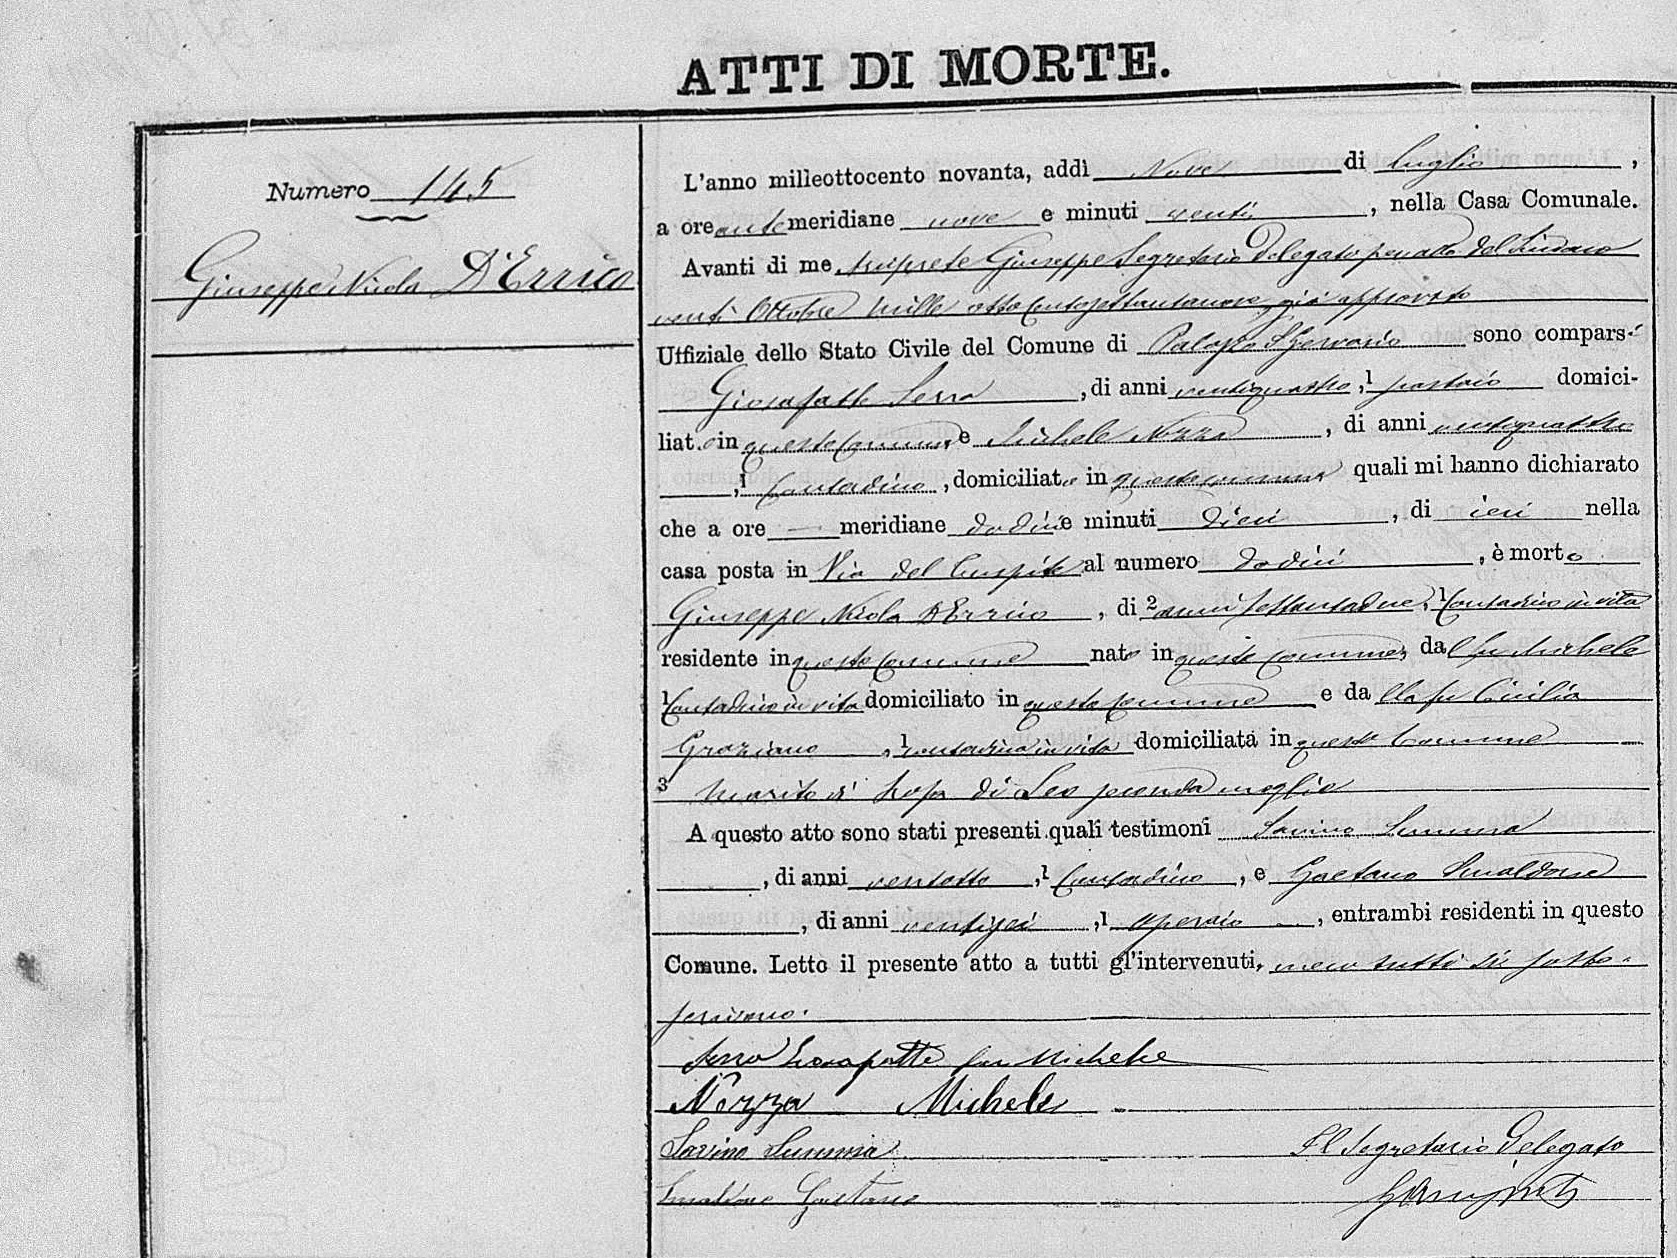 ATTI DI MORTE.
Numero 145
Giuseppe Nicola D'Errico
L'anno milleottocento novanta, addì Nove di Luglio,
a ore antemeridiane nove e minuti venti, nella Casa Comunale.
Avanti di me Giuseppe Segretario Delegato per atto del Sindaco
venti Ottobre mille ottocentosettantanove già approvato
Uffiziale dello Stato Civile del Comune di Palazzo S. Gervasio sono comparsi
Giosafatte Serra, di anni ventiquattro, 1 pastaio domici-
liato in questo Comune, e Michele Nozza, di anni ventiquattro
, 1 Contadino, domiciliato in questo comune quali mi hanno dichiarato
che a ore — meridiane dodici e minuti dieci, di ieri nella
casa posta in Via del al numero dodici, è morto
Giuseppe Nicola D'Errico, di 2 anni settantadue, 1 Contadino in vita
residente in questo Comune nato in questo Comune, dal fu Michele
1 Contadino in vita domiciliato in questo Comune e da lla fu Cicilia
Graziano, 1 contadina in vita domiciliata in questo Comune
3 marito di Rosa di Leo seconda moglie
A questo atto sono stati presenti quali testimoni Savino Summa
, di anni ventotto, 1 Contadino, e Gaetano Smaldone
, di anni ventisei, 1 operaio, entrambi residenti in questo
Comune. Letto il presente atto a tutti gl'intervenuti, meco tutti si sotto-
scrivono.
Serra Giosafatte fu Michele
Nozza Michele
Savino Summa Il Segretario Delegato
Smaldone Gaetano